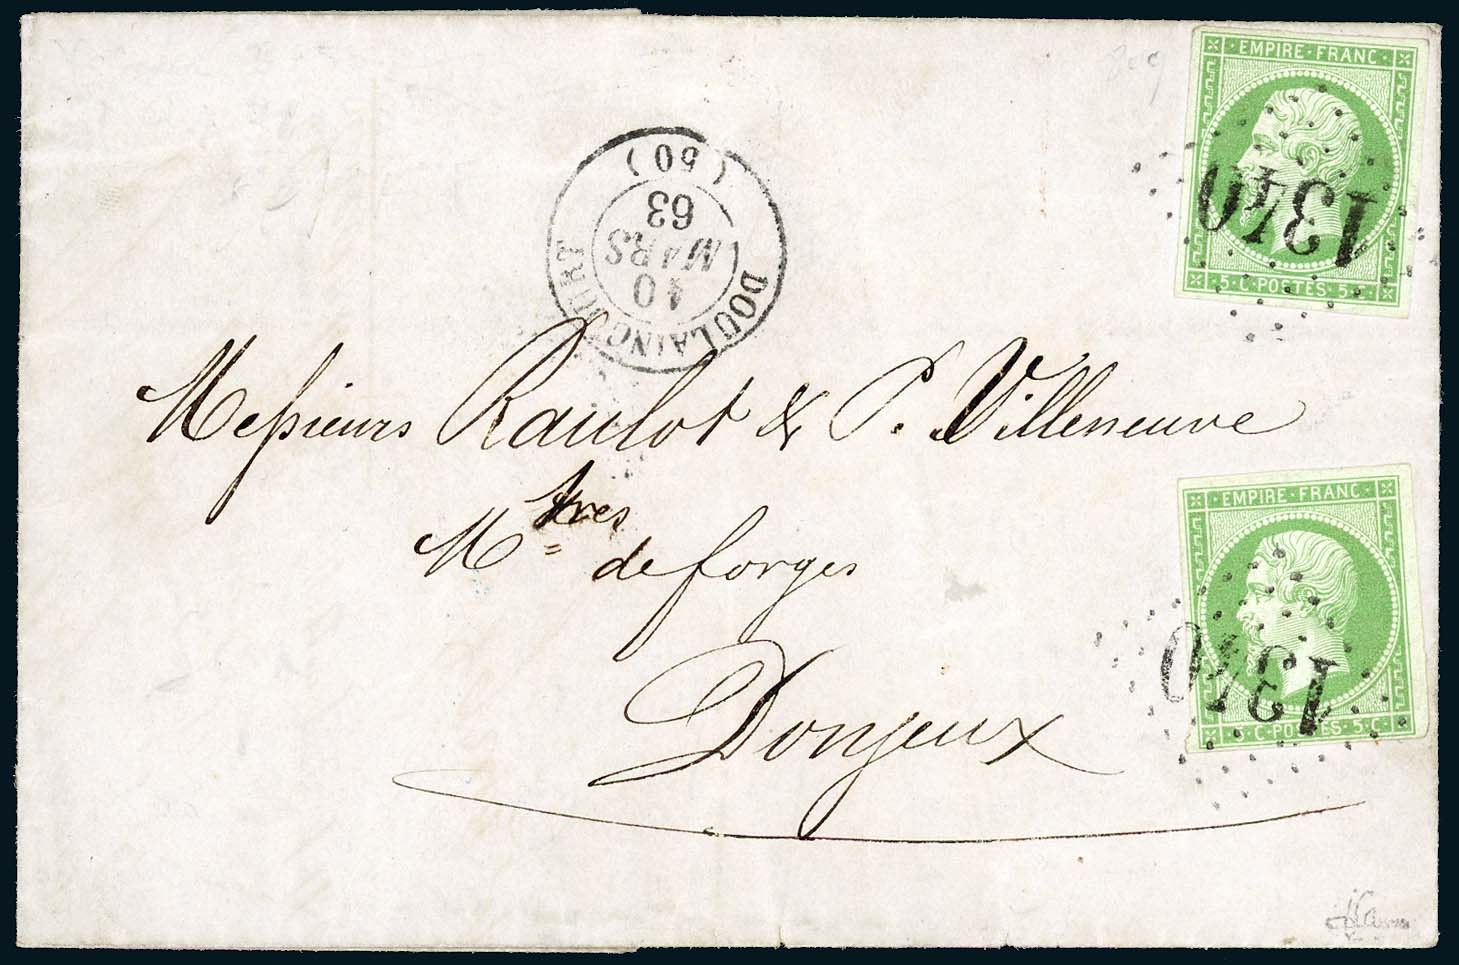 EMPIRE · FRANC
1340
5 · C · POSTES · 5 · C
DOULAINCOURT
10
MARS
63
(50)
Messieurs Raulot & P. Villeneuve
Mtres de forges
Donjeux
EMPIRE · FRANC
1340
5 · C · POSTES · 5 · C